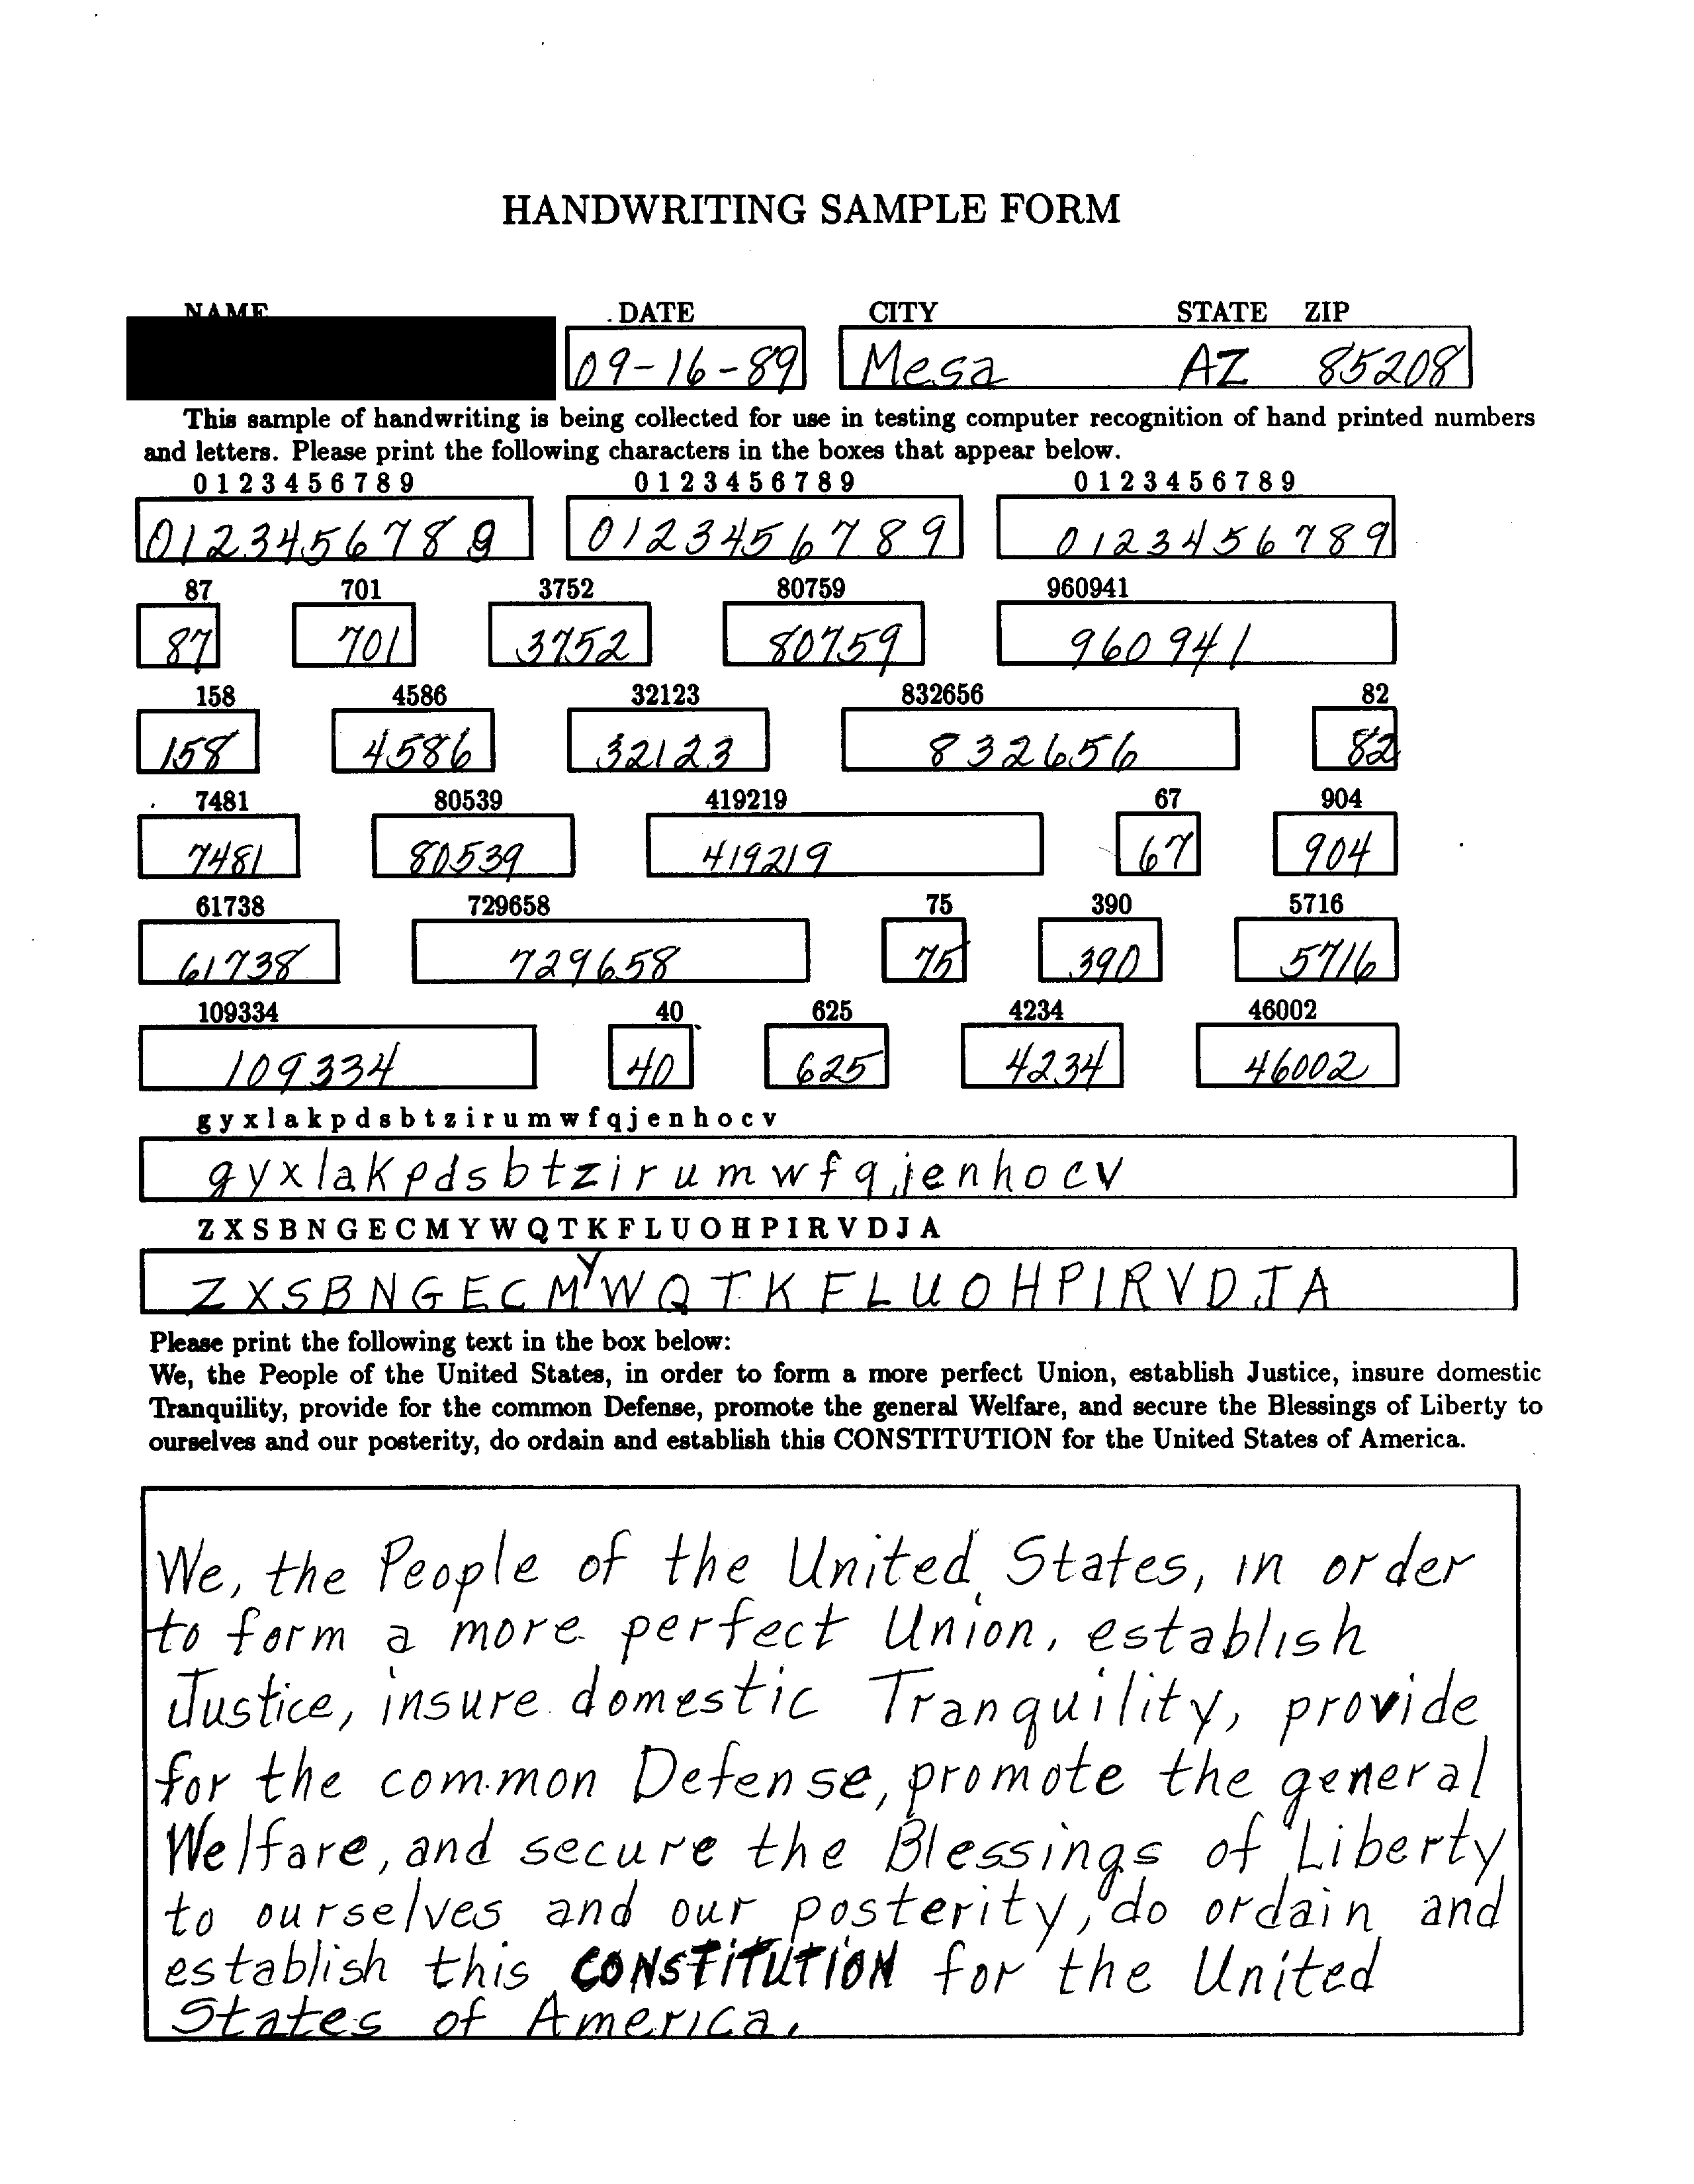 HANDWRITING SAMPLE FORM
NAME DATE CITY STATE ZIP
09-16-89 Mesa AZ 85208
This sample of handwriting is being collected for use in testing computer recognition of hand printed numbers
and letters. Please print the following characters in the boxes that appear below.
0 1 2 3 4 5 6 7 8 9 0 1 2 3 4 5 6 7 8 9 0 1 2 3 4 5 6 7 8 9
0123456789 0123456789 0123456789
87 701 3752 80759 960941
87 701 3752 80759 960941
158 4586 32123 832656 82
158 4586 32123 832656 82
7481 80539 419219 67 904
7481 80539 419219 67 904
61738 729658 75 390 5716
61738 729658 75 390 5716
109334 40 625 4234 46002
109334 40 625 4234 46002
g y x l a k p d s b t z i r u m w f q j e n h o c v
gyxlakpdsbtzirumwfqjenhocv
Z X S B N G E C M Y W Q T K F L U O H P I R V D J A
ZXSBNGECMYWQTKFLUOHPIRVDJA
Please print the following text in the box below:
We, the People of the United States, in order to form a more perfect Union, establish Justice, insure domestic
Tranquility, provide for the common Defense, promote the general Welfare, and secure the Blessings of Liberty to
ourselves and our posterity, do ordain and establish this CONSTITUTION for the United States of America.
We, the People of the United States, in order
to form a more perfect Union, establish
Justice, insure domestic Tranquility, provide
for the common Defense, promote the general
Welfare, and secure the Blessings of Liberty
to ourselves and our posterity, do ordain and
establish this CONSTITUTION for the United
States of America.